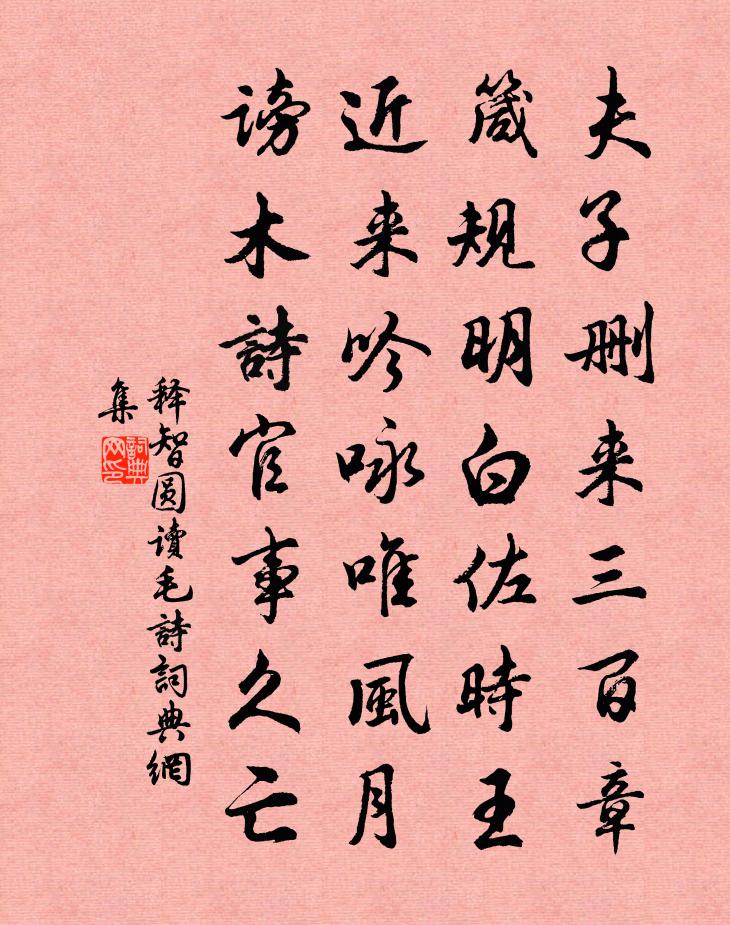 夫子删来三百章
箴规明白佐時王
近来吟咏唯風月
谤木詩官事久亡
释智圆讀毛詩詞典網
集
詞典網印